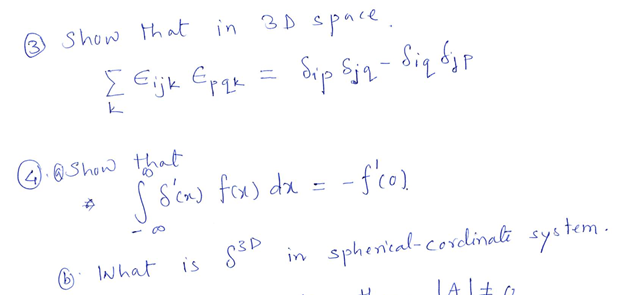 ③ Show that in 3D space.
∑_k ϵ_{ijk} ϵ_{pqk} = δ_{ip} δ_{jq} - δ_{iq} δ_{jp}
④. ⓐ Show that
∫_{-∞}^{∞} δ'(x) f(x) dx = - f'(0).
ⓑ. What is δ^{3D} in spherical-cordinate system.
|A| ≠ 0